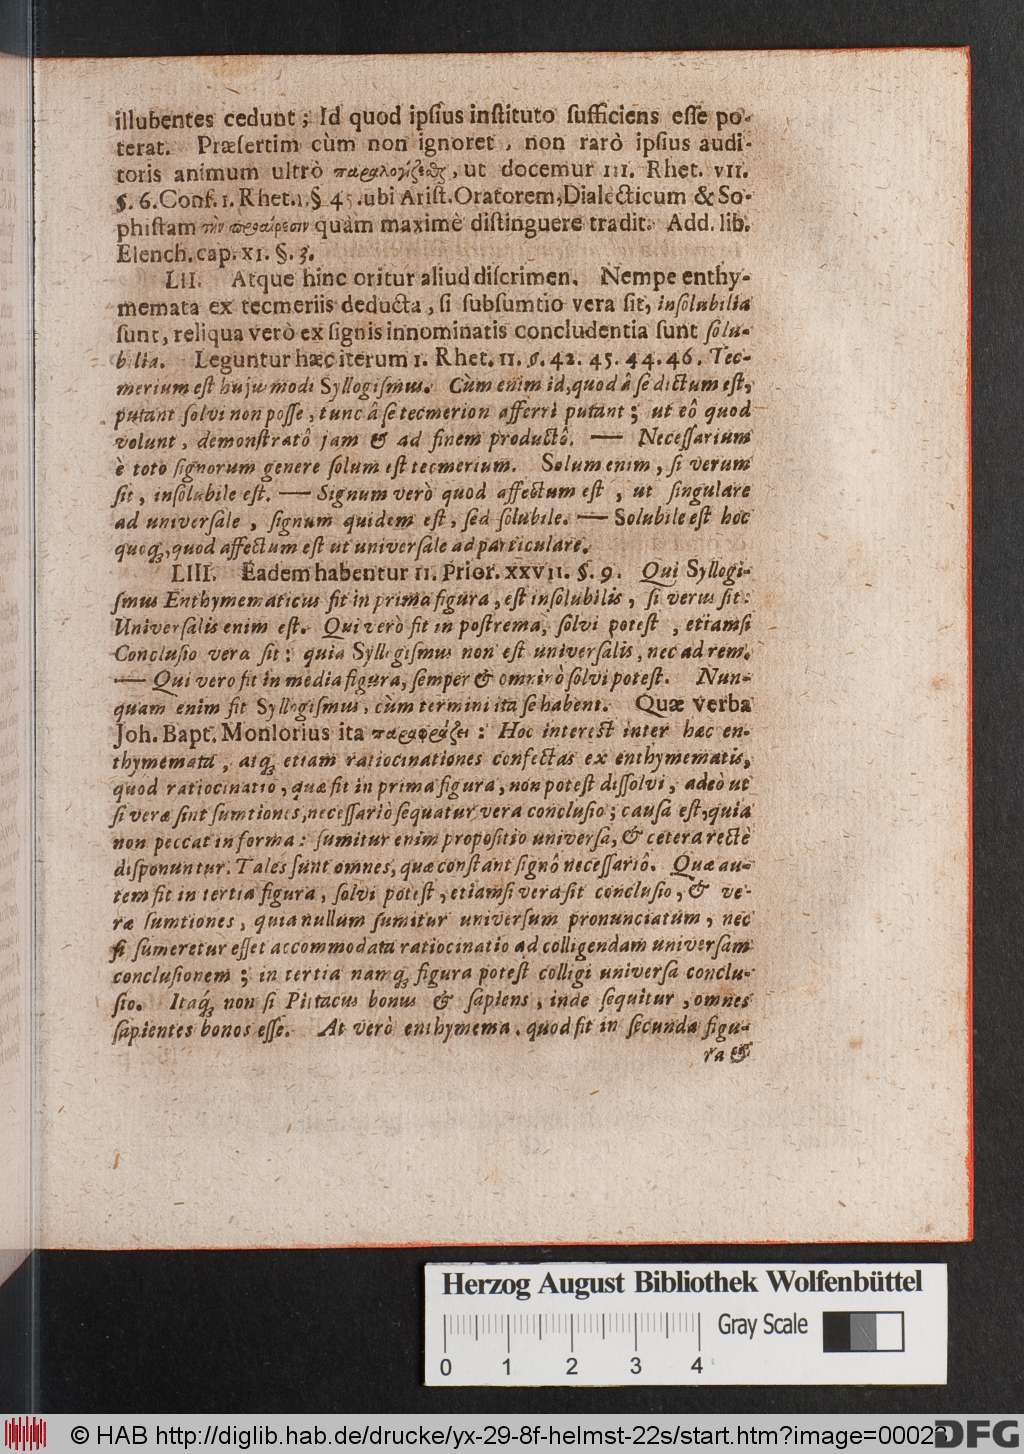 illubentes cedunt; Id quod ipsius instituto sufficiens esse po-
terat. Præsertim cùm non ignoret, non rarò ipsius audi-
toris animum ultrò παραλογίζεσθς, ut docemur III. Rhet. VII.
§. 6. Conf. 1. Rhet. 1. § 45. ubi Arist. Oratorem, Dialecticum & So-
phistam τὴν προαίρεσιν quàm maximè distinguere tradit. Add. lib.
Elench. cap. XI. §. 3.
LII. Atque hinc oritur aliud discrimen. Nempe enthy-
memata ex tecmeriis deducta, si subsumtio vera sit, insolubilia
sunt, reliqua verò ex signis innominatis concludentia sunt solu-
bilia. Leguntur hæc iterum 1. Rhet. II. §. 42. 45. 44. 46. Tec-
merium est hujusmodi Syllogismus. Cùm enim id, quod â se dictum est,
putant solvi non posse, tunc â se tecmerion afferri putant; ut eô quod
volunt, demonstratô jam & ad finem productô. — Necessarium
è toto signorum genere solum est tecmerium. Solum enim, si verum
sit, insolubile est. — Signum verò quod affectum est, ut singulare
ad universale, signum quidem est, sed solubile. — Solubile est hoc
quoq;, quod affectum est ut universale ad particulare.
LIII. Eadem habentur II. Prior. XXVII. §. 9. Qui Syllogi-
smus Enthymematicus fit in prima figura, est insolubilis, si verus sit:
Universalis enim est. Qui verò fit in postrema, solvi potest, etiamsi
Conclusio vera sit: quia Syllogismus non est universalis, nec ad rem.
— Qui vero fit in media figura, semper & omninò solvi potest. Nun-
quam enim fit Syllogismus, cùm termini ita se habent. Quæ verba
Joh. Bapt. Monlorius ita παραφράζει: Hoc interest inter hac en-
thymemata, atq; etiam ratiocinationes confectas ex enthymematis,
quod ratiocinatio, quæ fit in prima figura, non potest dissolvi, adeò ut
si veræ sint sumtiones, necessariò sequatur vera conclusio; causa est, quia
non peccat in forma: sumitur enim propositio universa, & cetera rectè
disponuntur. Tales sunt omnes, quæ constant signô necessariô. Quæ au-
tem fit in tertia figura, solvi potest, etiamsi vera sit conclusio, & ve-
ræ sumtiones, quia nullum sumitur universum pronunciatum, nec
si sumeretur esset accommodata ratiocinatio ad colligendam universam
conclusionem; in tertia namq; figura potest colligi universa conclu-
sio. Itaq; non si Pittacus bonus & sapiens, inde sequitur, omnes
sapientes bonos esse. At verò enthymema, quod fit in secunda figu-
ra &
Herzog August Bibliothek Wolfenbüttel
Gray Scale
0 1 2 3 4
© HAB http://diglib.hab.de/drucke/yx-29-8f-helmst-22s/start.htm?image=00023
DFG